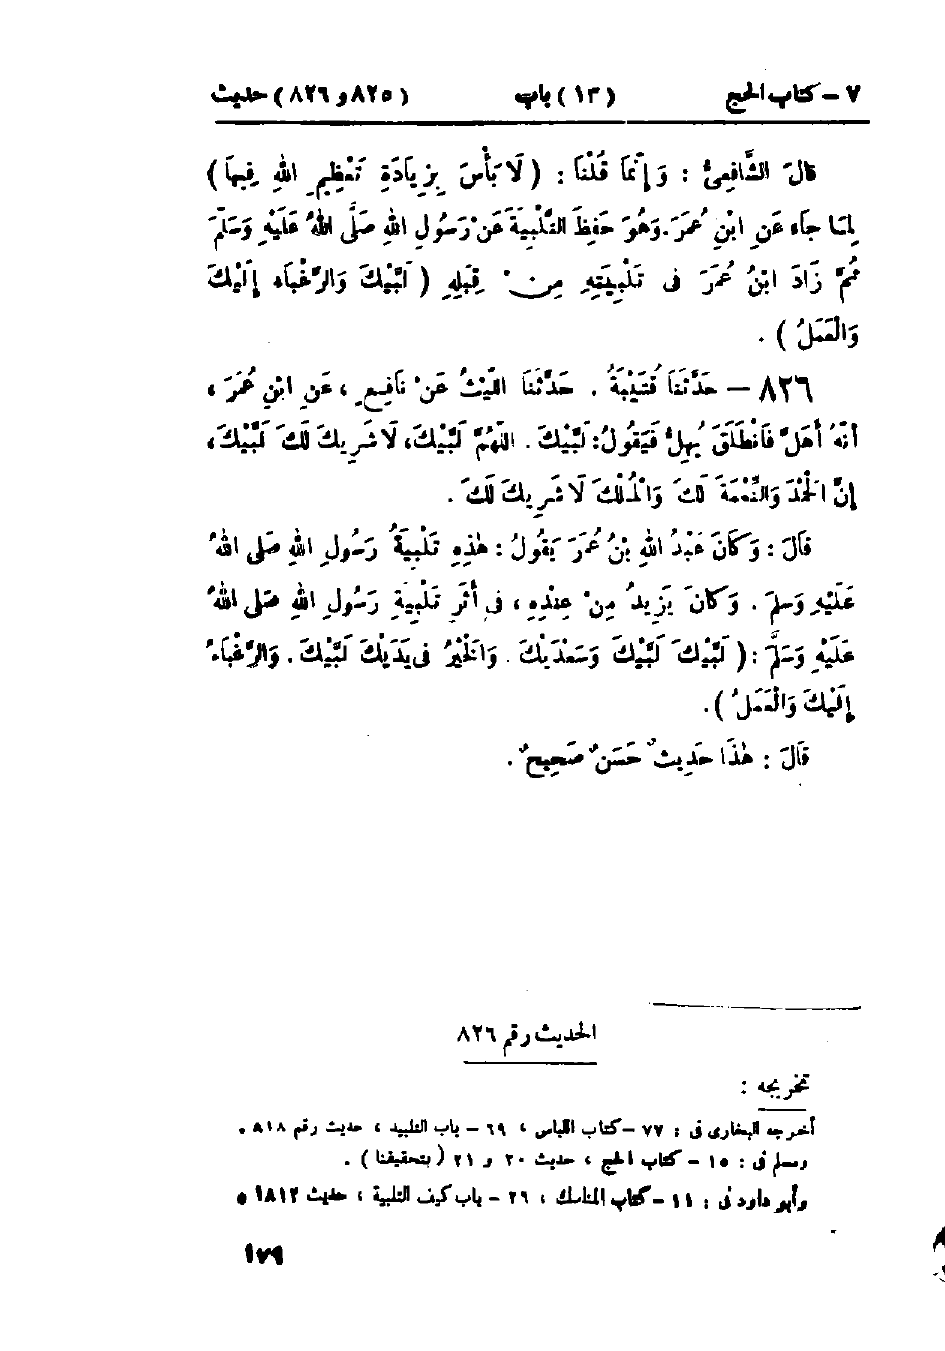 ٧ – كتاب الحج (١٣) باب (٨٢٥ و ٨٢٦) حديث
قَالَ الشَّافِعِىُّ : وَإِنَّمَا قُلْنَا : ( لَا بَأْسَ بِزِيَادَةِ تَعْظِيمِ اللهِ فِيهَا )
لِمَا جَاءَ عَنِ ابْنِ عُمَرَ . وَهُوَ حَفِظَ التَّلْبِيَةَ عَنْ رَسُولِ اللهِ صَلَّى اللهُ عَلَيْهِ وَسَلَّمَ
ثُمَّ زَادَ ابْنُ عُمَرَ فى تَلْبِيَتِهِ مِنْ قِبَلِهِ ( لَبَّيْكَ وَالرَّغْبَاء إِلَيْكَ
وَالْعَمَلُ ) .
٨٢٦ – حَدَّثَنَا قُتَيْبَةُ . حَدَّثَنَا اللَّيْثُ عَنْ نَافِعٍ ، عَنِ ابْنِ عُمَرَ ،
أَنَّهُ أَهَلَّ فَانْطَلَقَ يُهِلُّ فَيَقُولُ : لَبَّيْكَ . اللَّهُمَّ لَبَّيْكَ ، لَا شَرِيكَ لَكَ لَبَّيْكَ ،
إِنَّ الْحَمْدَ وَالنِّعْمَةَ لَكَ وَالْمُلْكَ لَا شَرِيكَ لَكَ .
قَالَ : وَكَانَ عَبْدُ اللهِ بْنُ عُمَرَ يَقُولُ : هٰذِهِ تَلْبِيَةُ رَسُولِ اللهِ صَلى اللهُ
عَلَيْهِ وَسَلمَ . وَكَانَ يَزِيدُ مِنْ عِنْدِهِ ، فى أَثَرِ تَلْبِيَةِ رَسُولِ اللهِ صَلى اللهُ
عَلَيْهِ وَسَلَّمَ : ( لَبَّيْكَ لَبَّيْكَ وَسَعْدَيْكَ . وَالْخَيْرُ فى يَدَيْكَ لَبَّيْكَ . وَالرَّغْبَاءُ
إِلَيْكَ وَالْعَمَلُ ) .
قَالَ : هٰذَا حَدِيثٌ حَسَنٌ صَحِيحٌ .
الحديث رقم ٨٢٦
تخريجه :
أخرجه البخارى فى : ٧٧ – كتاب اللباس ، ٦٩ – باب التلبيد ، حديث رقم ٨١٨ .
ومسلم فى : ١٥ – كتاب الحج ، حديث ٢٠ و ٢١ ( بتحقيقنا ) .
وأبو داود فى : ١١ – كتاب المناسك ، ٢٦ – باب كيف التلبية ، حديث ١٨١٢ .
١٧٩